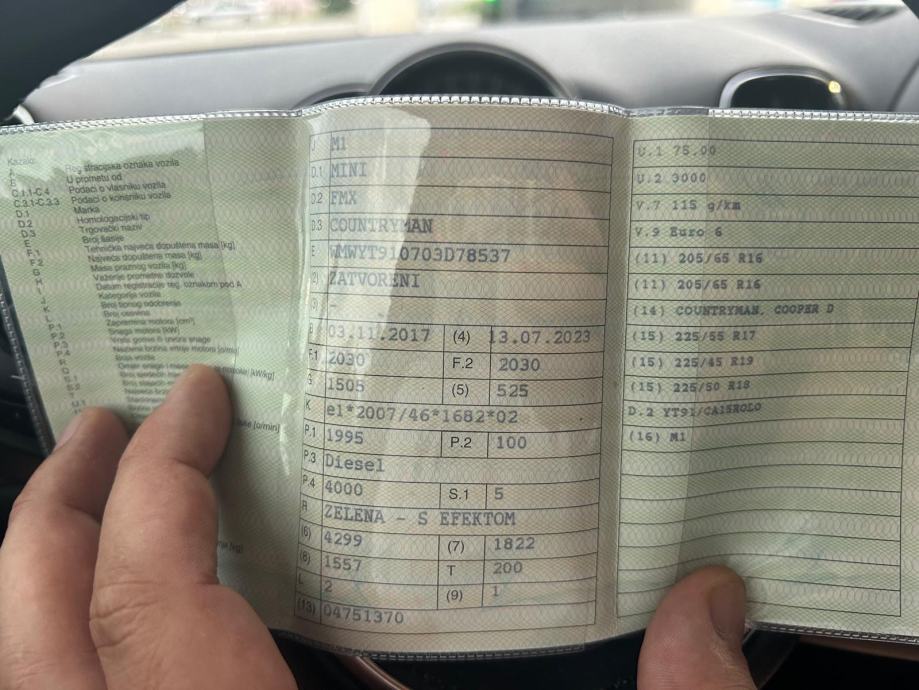 Kazalo:
Registracijska oznaka vozila
U prometu od
C.1.1-C.4 Podaci o vlasniku vozila
C.3.1-C.3.3 Podaci o korisniku vozila
D.1 Marka
D.2 Homologacijski tip
D.3 Trgovački naziv
E Broj šasije
F.1 Tehnička najveća dopuštena masa [kg]
F.2 Najveća dopuštena masa [kg]
G Masa praznog vozila [kg]
H Važenje prometne dozvole
I Datum registracije reg. oznakom pod A
J Kategorija vozila
K Broj tipnog odobrenja
L Broj osovina
P.1 Zapremina motora [cm³]
P.2 Snaga motora [kW]
P.3 Vrsta goriva ili izvora snage
P.4 Nazivna brzina vrtnje motora [o/min]
R Boja vozila
J M1
D.1 MINI
D.2 FMX
D.3 COUNTRYMAN
E WMWYT910703D78537
(2) ZATVORENI
(3) -
B 03.11.2017 (4) 13.07.2023
F.1 2030 F.2 2030
G 1505 (5) 525
K e1*2007/46*1682*02
P.1 1995 P.2 100
P.3 Diesel
P.4 4000 S.1 5
R ZELENA - S EFEKTOM
(6) 4299 (7) 1822
(8) 1557 T 200
L 2 (9) 1
(13) 04751370
U.1 75.00
U.2 3000
V.7 115 g/km
V.9 Euro 6
(11) 205/65 R16
(11) 205/65 R16
(14) COUNTRYMAN, COOPER D
(15) 225/55 R17
(15) 225/45 R19
(15) 225/50 R18
D.2 YT91/CA15ROLO
(16) M1